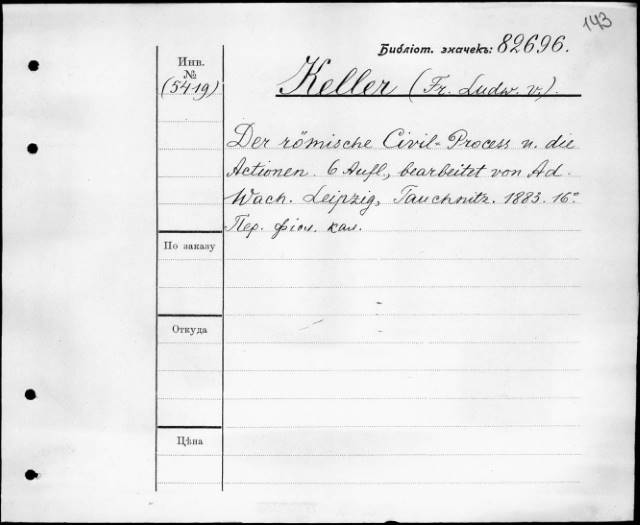 143
Библіот. значекъ: 82696.
Инв.
№
(5419)
Keller (Fr. Ludw. v.).
Der römische Civil-Process u. die
Actionen. 6 Aufl., bearbeitet von Ad.
Wach. Leipzig, Tauchnitz. 1883. 16°
Пер. фіол. кал.
По заказу
Откуда
Цѣна